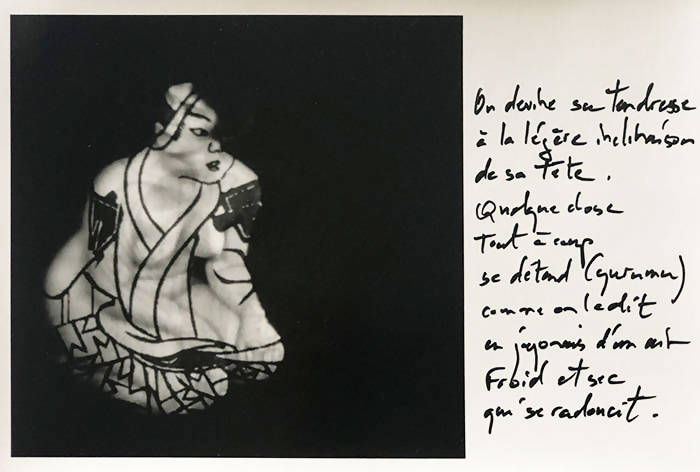 On devine sa tendresse
à la légère inclinaison
de sa tête.
Quelque chose
tout à coup
se détend (yurumu)
comme on le dit
en japonais d'un vent
froid et sec
qui se radoucit.